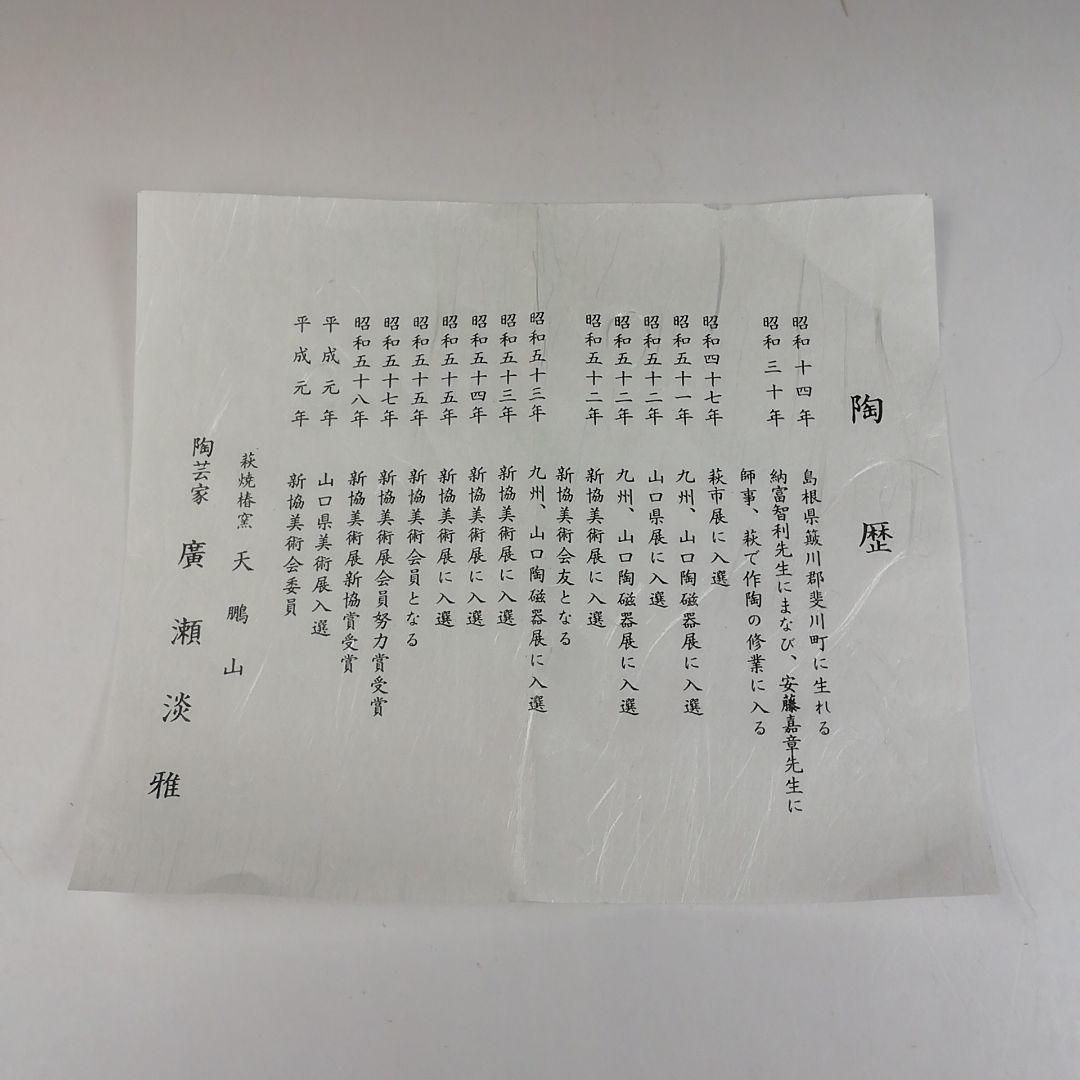 陶歴
昭和十四年 島根県簸川郡斐川町に生れる
昭和三十年 納富智利先生にまなび、安藤嘉章先生に
師事、萩で作陶の修業に入る
昭和四十七年 萩市展に入選
昭和五十一年 九州、山口陶磁器展に入選
昭和五十二年 山口県展に入選
昭和五十二年 九州、山口陶磁器展に入選
昭和五十二年 新協美術展に入選
新協美術会友となる
昭和五十三年 九州、山口陶磁器展に入選
昭和五十三年 新協美術展に入選
昭和五十四年 新協美術展に入選
昭和五十五年 新協美術展に入選
昭和五十五年 新協美術会員となる
昭和五十七年 新協美術展会員努力賞受賞
昭和五十八年 新協美術展新協賞受賞
平成元年 山口県美術展入選
平成元年 新協美術会委員
萩焼椿窯 天鵬山
陶芸家 廣瀬淡雅